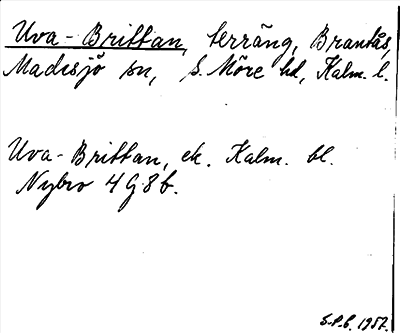 Uva-Brittan, terräng, Brantås,
Madesjö sn, S. Möre hd, Kalm. l.
Uva-Brittan, ek. Kalm. bl.
Nybro 4G8b.
S.P.B. 1957.